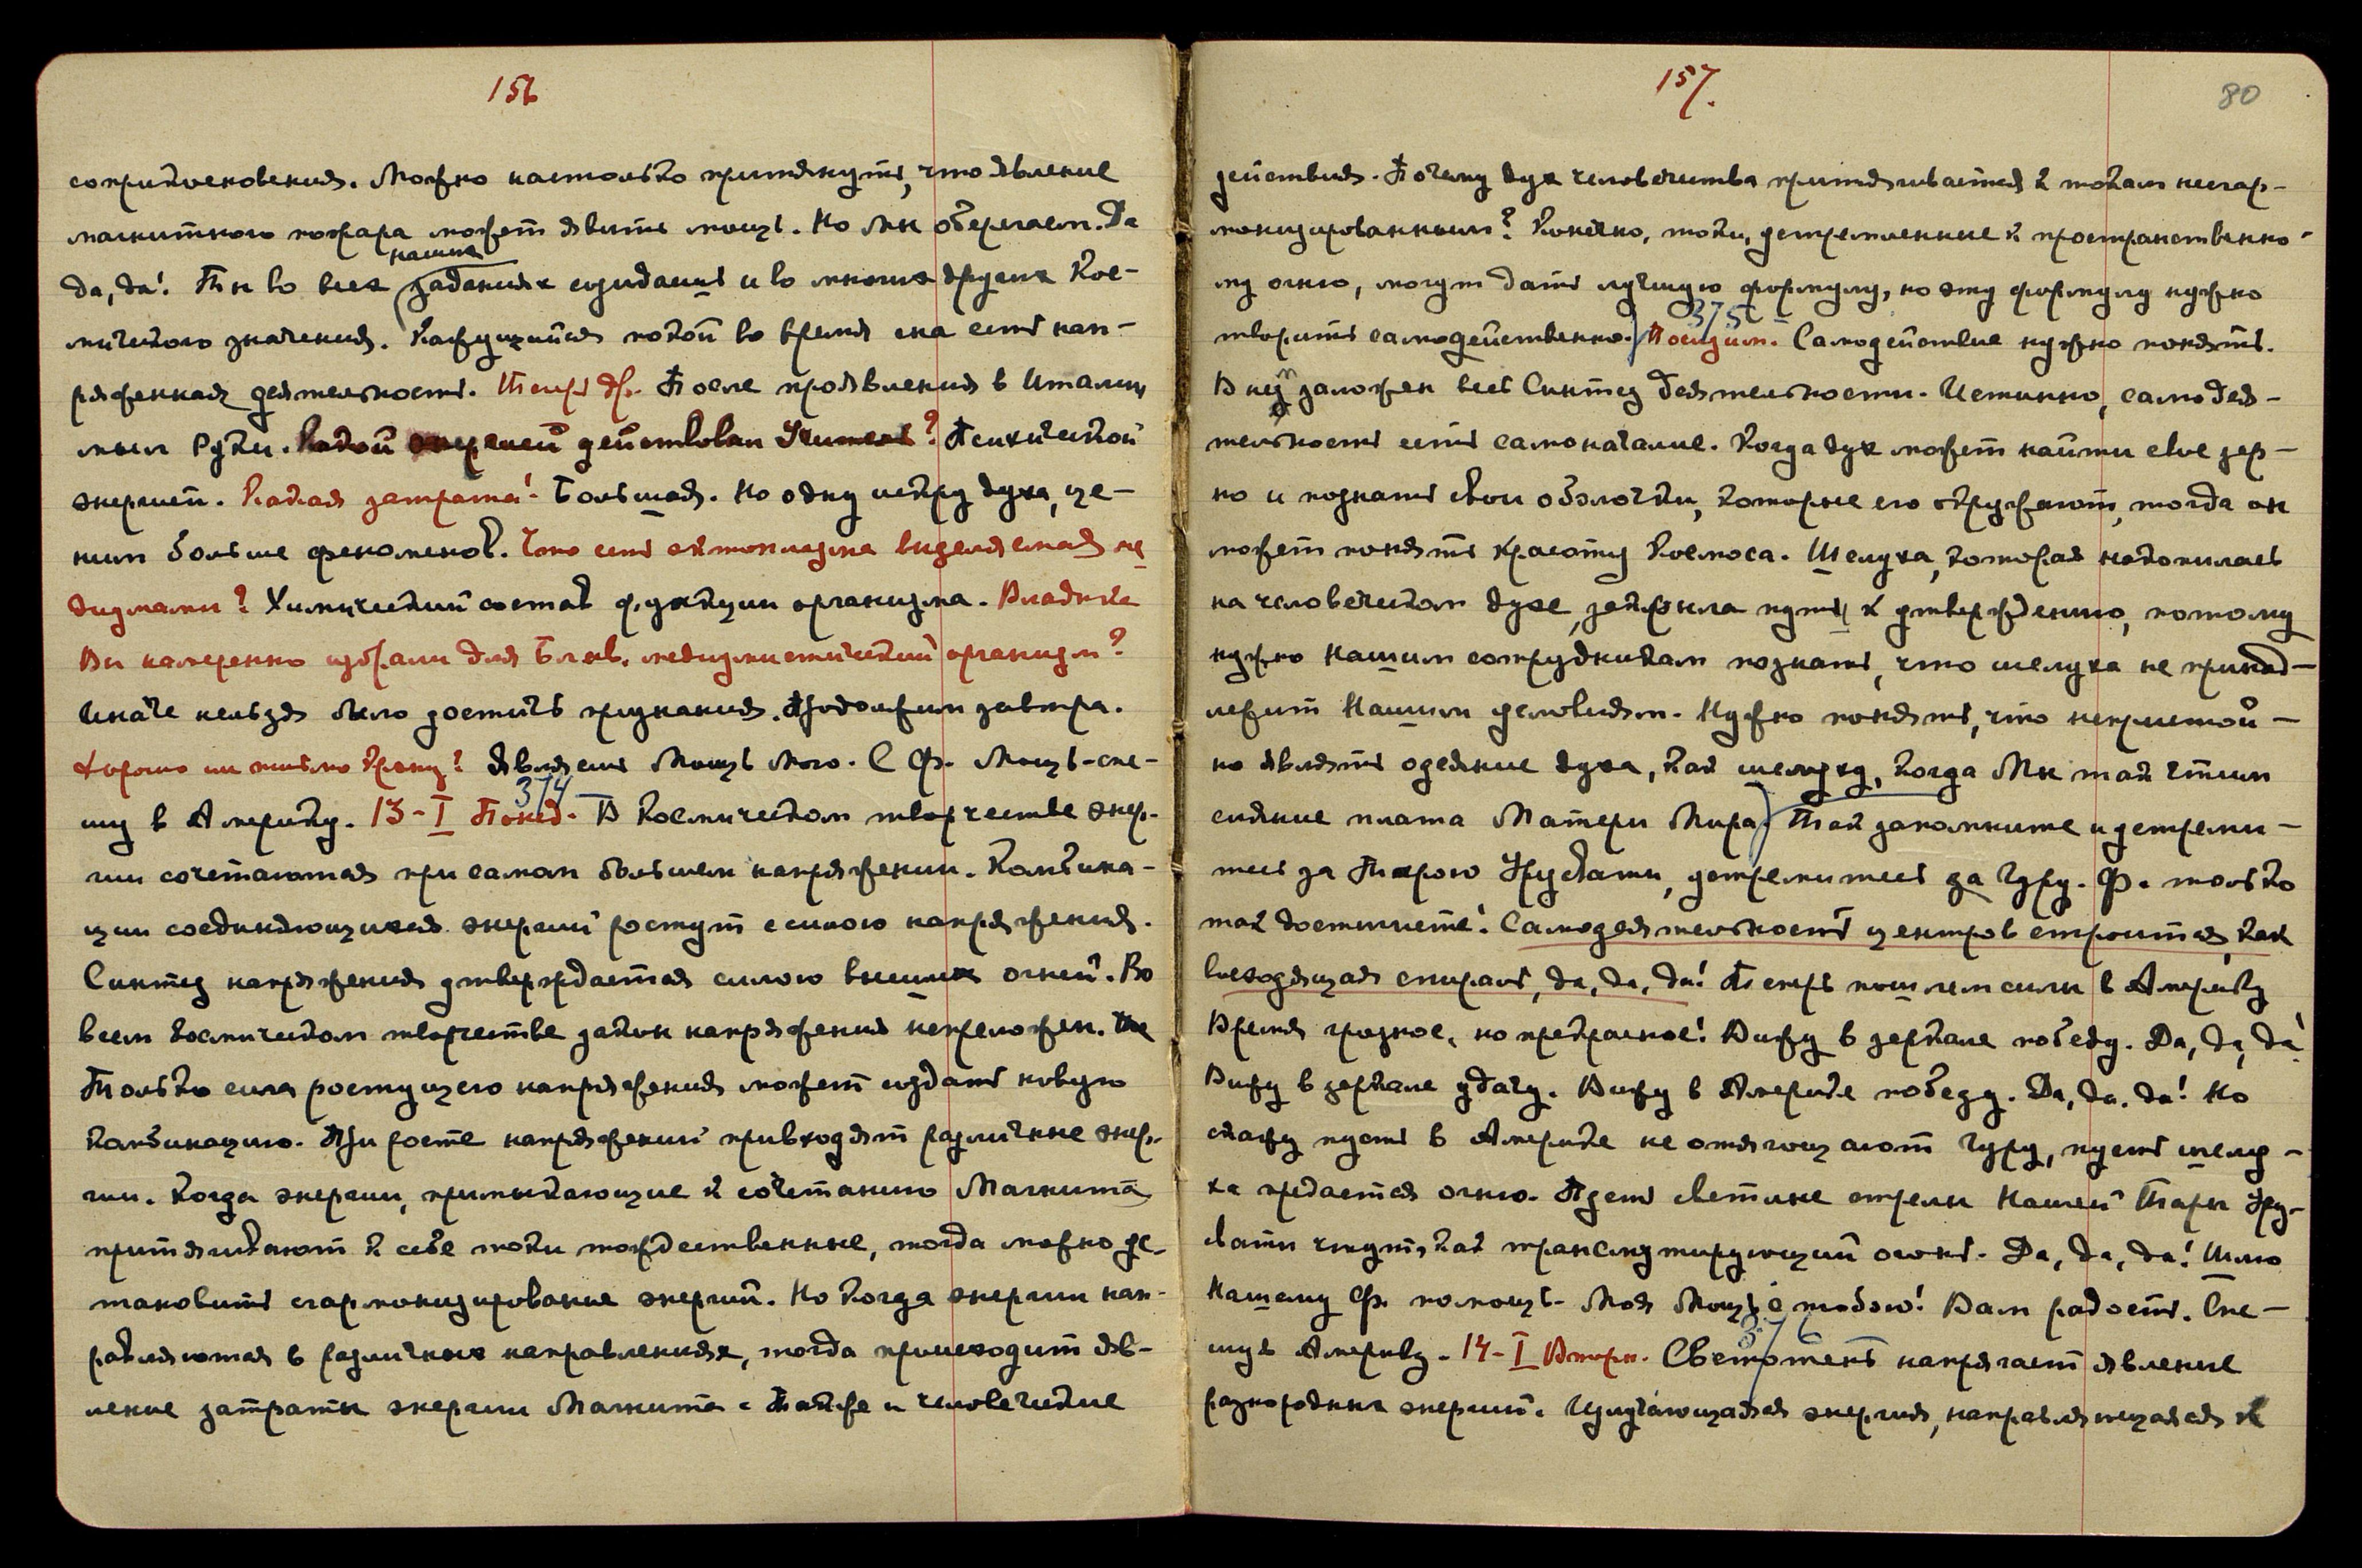 156
соприкосновения. Можно настолько притянуть, что явление
магнитного пожара может явить мощь. Но Мы оберегаем. Да
да, да! Ты во всех наших заданиях созидаешь и во многих других Кос-
мического значения. Кажущийся покой во время сна есть нап-
ряженная деятельность. Теперь др. После проявления в Италии,
мыл руки. Какой энергией действовал Учитель? Психической
энергией. Какая затрата! Большая. Но одну искру духа, це-
ним больше феноменов. Что есть эктоплазма выделяемая ме
диумами? Химический состав функции организма. Владыка
Вы намеренно избрали для Блав. медиумистический организм?
Иначе нельзя было достичь признания. Продолжим завтра.
Хорошо ли письмо Крану? Являешь Мощь Мою. С Ф. Мощь-спе-
шу в Америку. 13-I Понед. 374 В Космическом творчестве энер-
гии сочетаются при самом большем напряжении. Комбина-
ции соединяющихся энергий ростут с силою напряжения.
Синтез напряжения утверждается силою высших огней. Во
всем космическом творчестве закон напряжения непреложен.
Только сила ростущего напряжения может создать новую
комбинацию. При росте напряжений привходят различные энер-
гии. Когда энергии, примыкающие к сочетанию Магнита
притягивают к себе токи тождественные, тогда можно ус-
тановить сгармонизирование энергий. Но когда энергии нап-
равляются в различных направлениях, тогда происходит яв-
ление затраты энергии Магнита. Также и человеческие
157.
80
действия. Почему дух человечества притягивается к токам несгар-
монизированным? Конечно, токи, устремленные к пространственно-
му огню, могут дать лучшую формулу, но эту формулу нужно
творить самодейственно. 375 Посидим. Самодействие нужно понять.
В нем заложен весь Синтез деятельности. Истинно, самодея-
тельность есть самоначалие. Когда дух может найти свое зер-
но и познать свои оболочки, которые его окружают, тогда он
может понять красоту Космоса. Шелуха, которая накопилась
на человеческом духе, закрыла путь к утверждению, потому
нужно Нашим сотрудникам познать, что шелуха не принад-
лежит Нашим условиям. Нужно понять, что непристой-
но являть одеяние духа, как шелуху, когда Мы так чтим
сияние плата Матери Мира. Так запомните и устреми-
тесь за Тарою Урусвати, устремитесь за Гуру. Ф. только
так достигнете! Самодеятельность центров строится, как
восходящая спираль, да, да, да! Теперь пошлем силы в Америку
Время грозное, но прекрасное! Вижу в зеркале победу. Да, да, да!
Вижу в зеркале удачу. Вижу в Америке победу. Да, да, да! Но
скажу пусть в Америке не отягощают Гуру, пусть шелу-
ха предается огню. Пусть светлые стрелы Нашей Тары Уру-
свати чтут, как трансмутирующий огонь. Да, да, да! Шлю
Нашему Ф. помощь. Моя Мощь с тобою! Вам радость. Спе-
шу в Америку. 14-I Вторн. 376 Светотень напрягает явление
разнородных энергий. Излучающаяся энергия, направляющаяся к